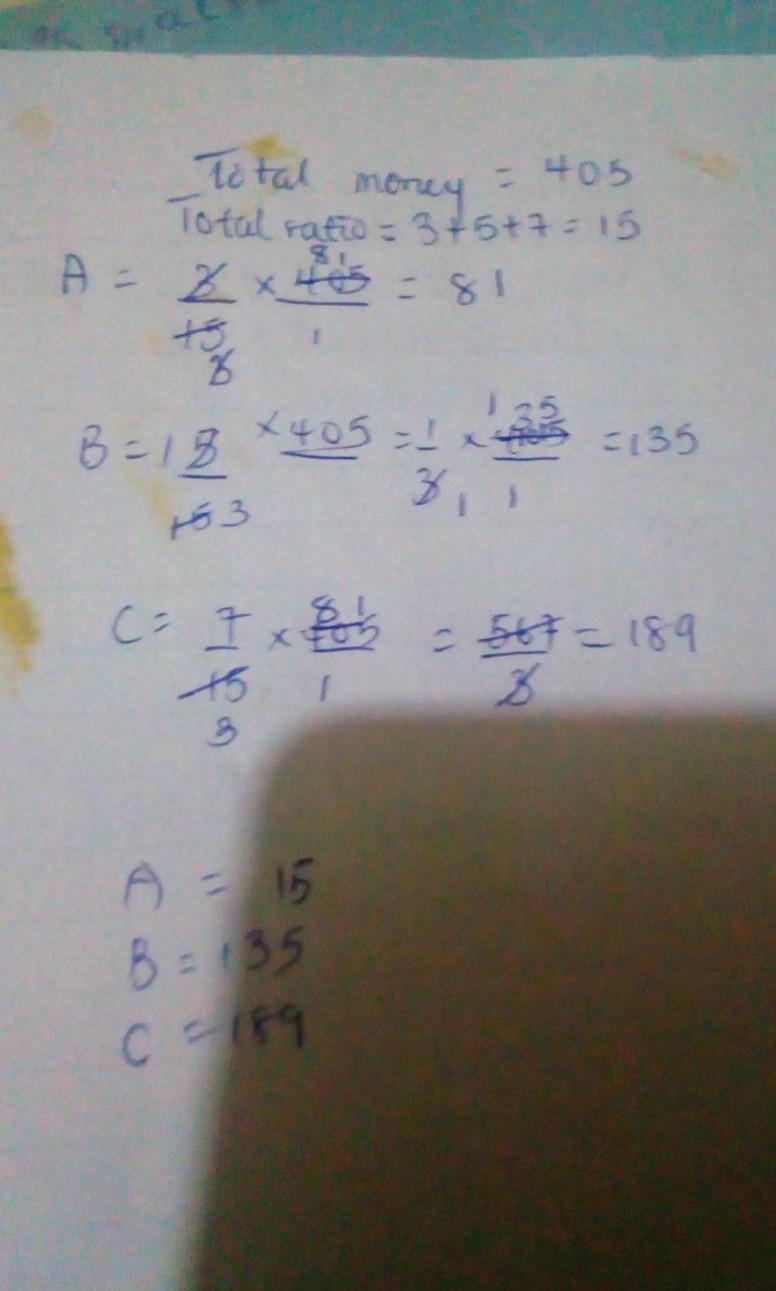 Total money = 405
Total ratio = 3+5+7 = 15
A = 3/15 3 × 405/1 81 = 81
B = 1 5/15 3 × 405 = 1/3 1 × 405/1 135 = 135
C = 7/15 3 × 405/1 81 = 567/3 = 189
A = 15
B = 135
C = 189